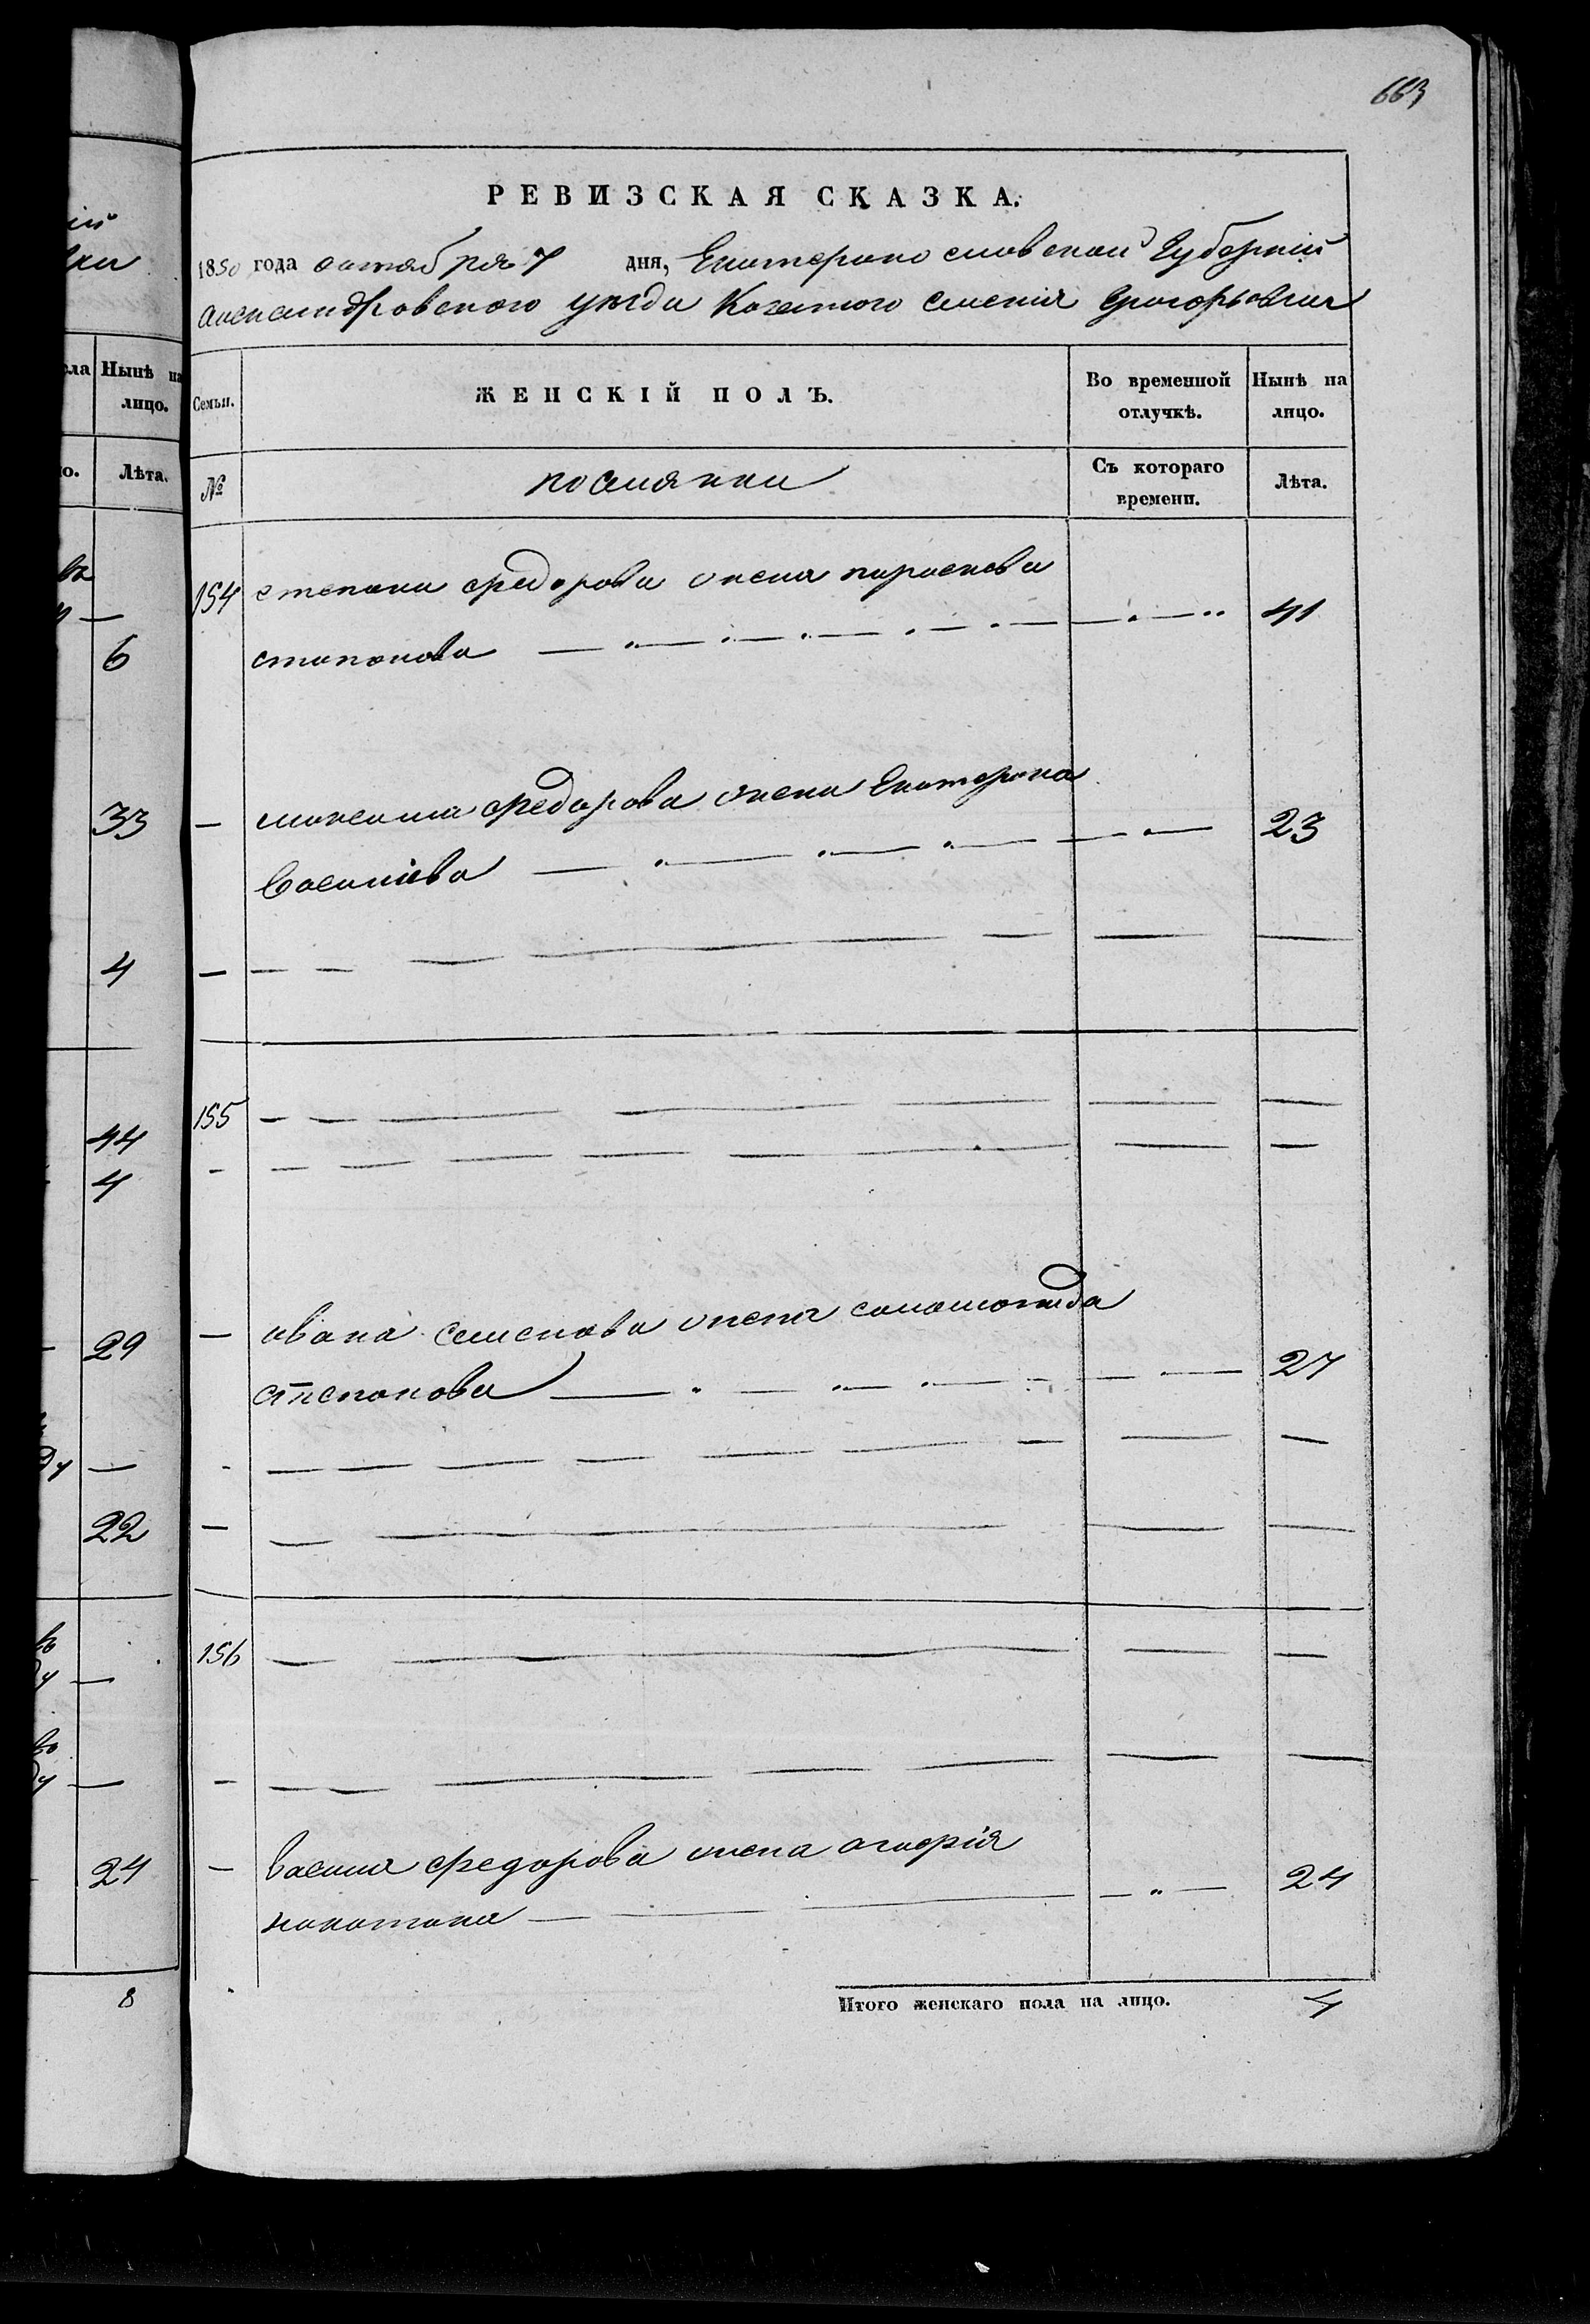 663
РЕВИЗСКАЯ СКАЗКА.
1850 года октября 7 дня, Екатеринославской Губерній
Александровского уезда Казенного селенія Григорьевки
Семьи.
ЖЕНСКІЙ ПОЛЪ.
Во временной отлучкѣ.
Нынѣ на лицо.
№
поселянки
Съ котораго времени.
Лѣта.
154 степана федорова жена параскева
степанова — 41
— максима федорова жена Екатерина
Василіева — 23
—
155 —
—
— ивана семенова жена саломонида
степанова — 27
—
—
156 —
—
— василя федорова жена агафія
никитина — 24
Итого женскаго пола на лицо. 4
Нынѣ на
лицо.
Лѣта.
—
6
33
4
44
4
29
—
22
—
—
24
8